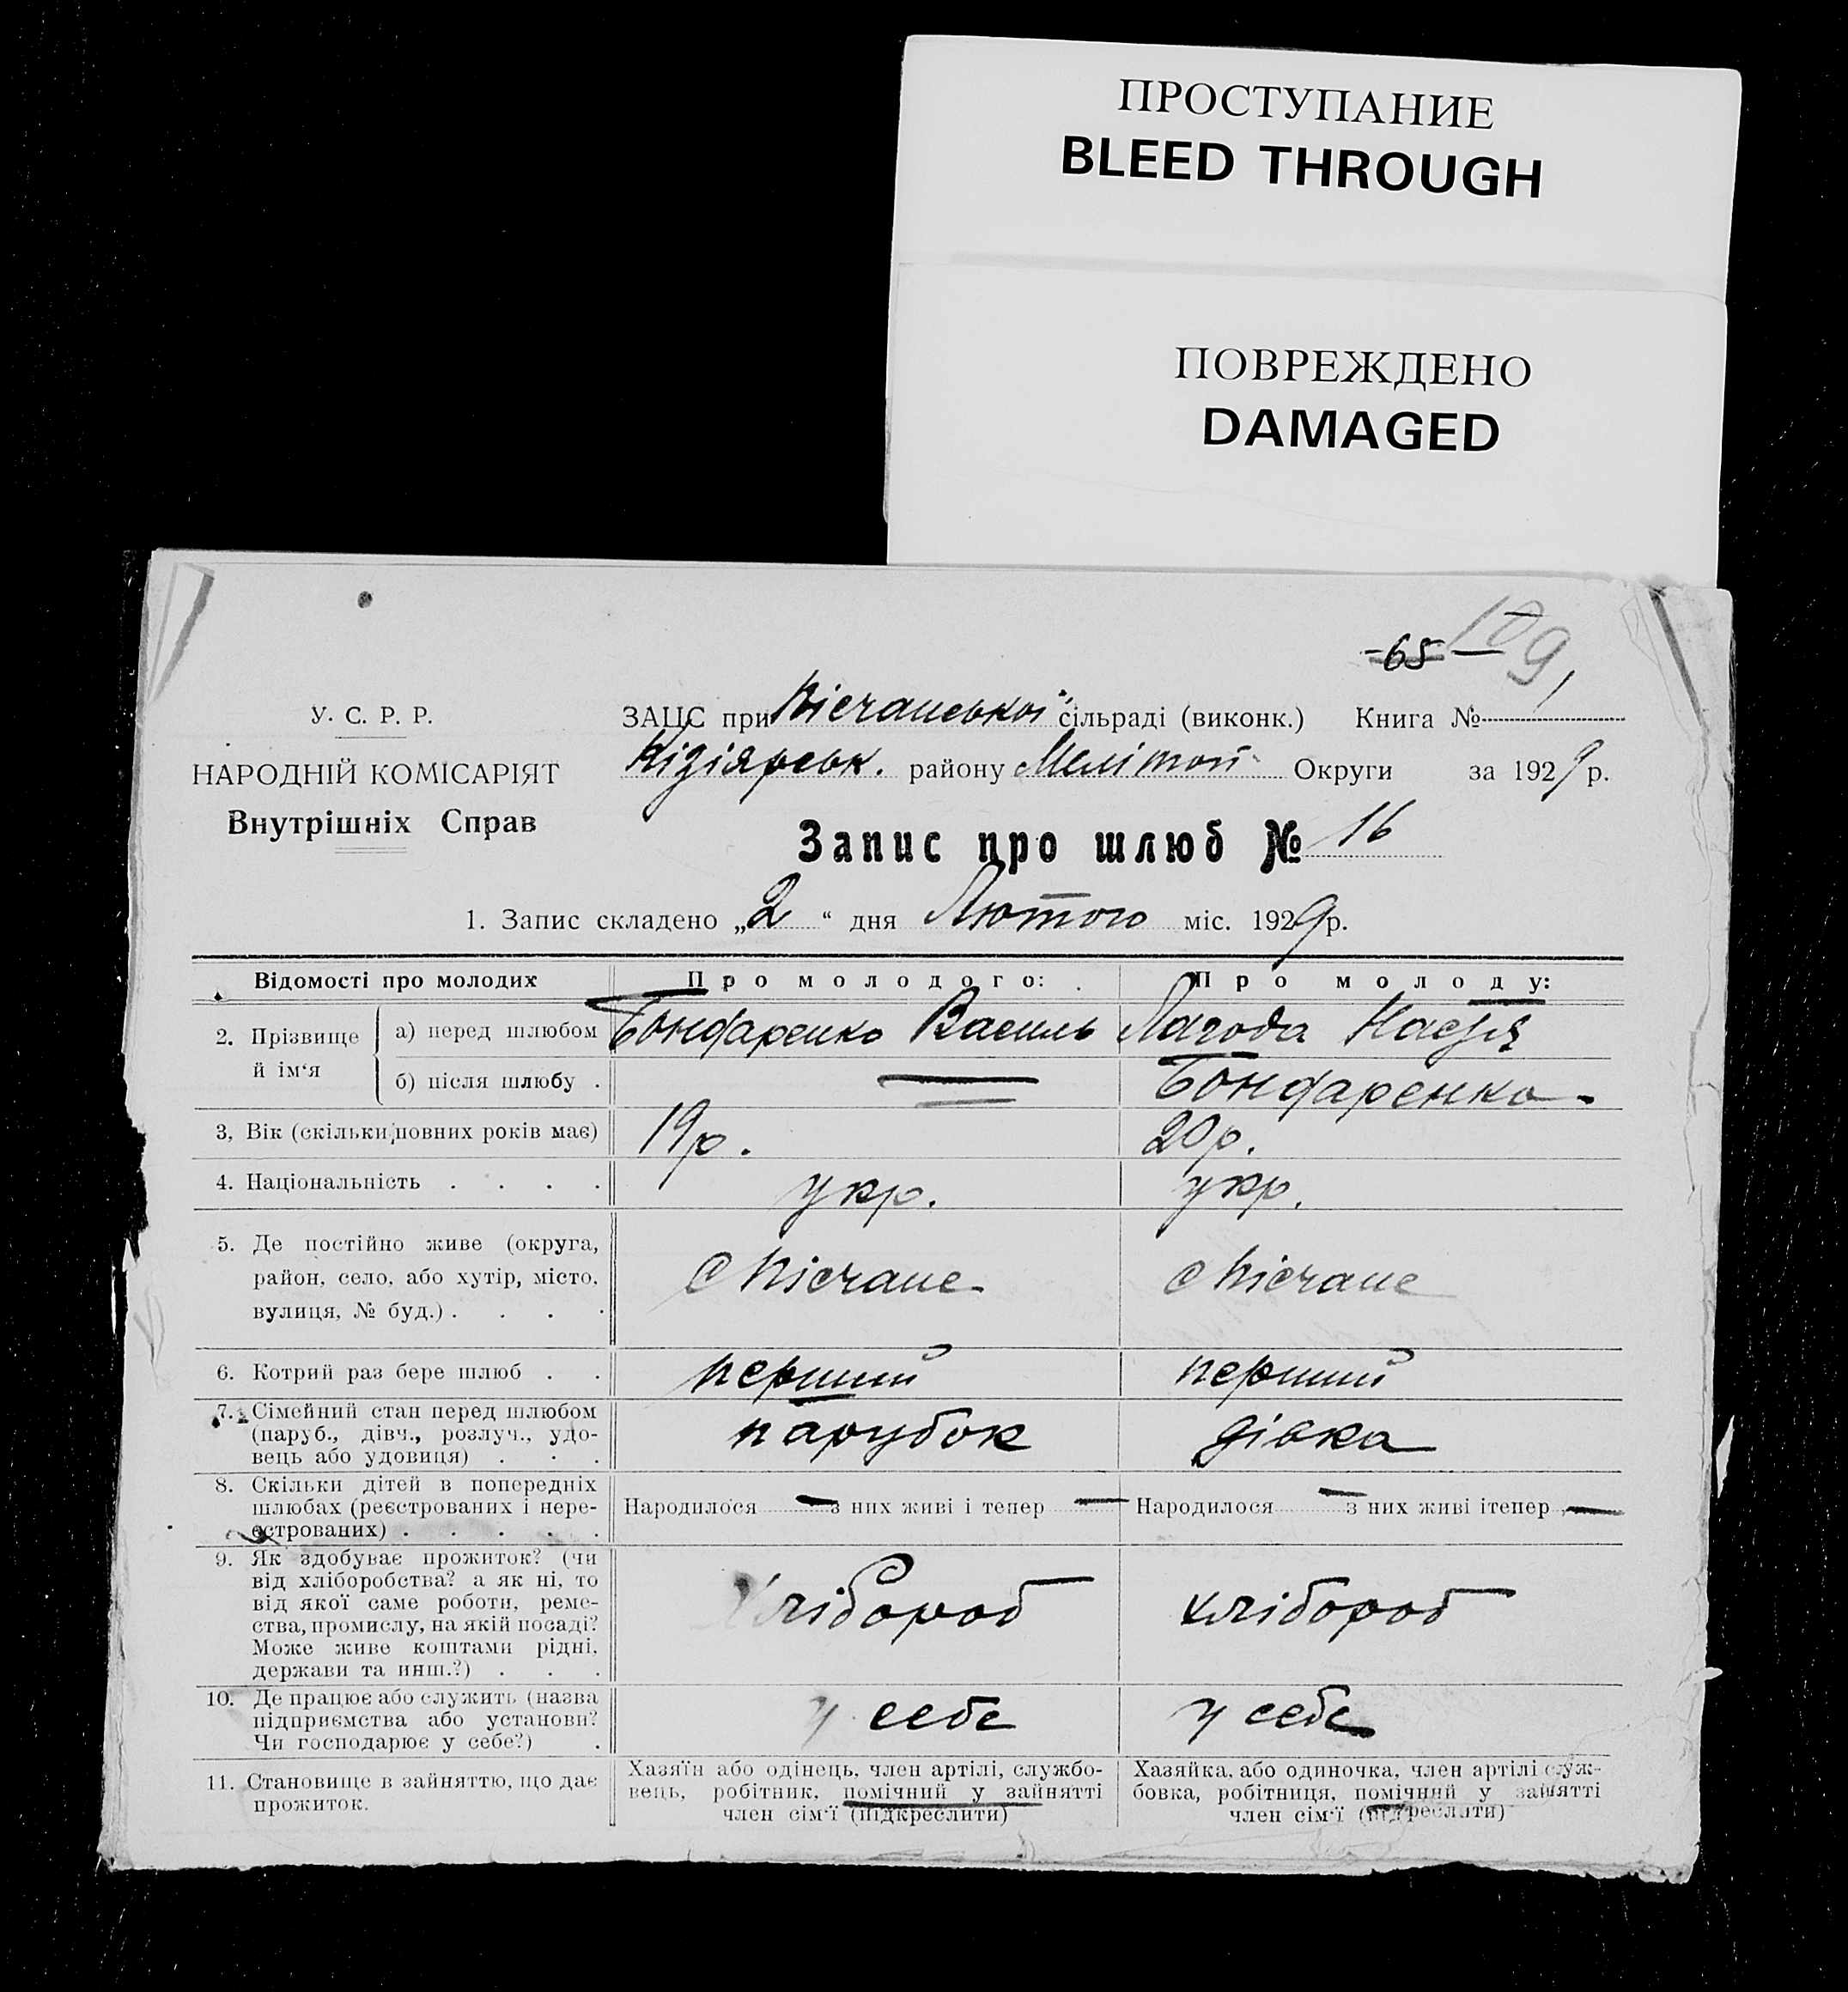 ПРОСТУПАНИЕ
BLEED THROUGH
ПОВРЕЖДЕНО
DAMAGED
-65- 109
У. С. Р. Р.
НАРОДНІЙ КОМІСАРІЯТ
Внутрішніх Справ
ЗАЦС при Пісчанської сільраді (виконк.) Книга №
Кізіярськ. району Меліт. Округи за 1929 р.
Запис про шлюб № 16
1. Запис складено „2“ дня Лютого міс. 1929 р.
Відомості про молодих Про молодого: Про молоду:
2. Прізвище й ім‘я
а) перед шлюбом Бондаренко Василь Лагода Настя
б) після шлюбу . — Бондаренко
3, Вік (скільки повних років має) 19 р. 20 р.
4. Національність . . . . укр. укр.
5. Де постійно живе (округа,
район, село, або хутір, місто,
вулиця, № буд.) . . . . с Пісчане с Пісчане
6. Котрий раз бере шлюб . . перший перший
7. Сімейний стан перед шлюбом
(паруб., дівч., розлуч., удо-
вець або удовиця) . . . парубок дівка
8. Скільки дітей в попередніх
шлюбах (реєстрованих і нере-
єстрованих) . . . . .
Народилося — з них живі і тепер — Народилося — з них живі ітепер —
9. Як здобуває прожиток? (чи
від хліборобства? а як ні, то
від якої саме роботи, реме-
ства, промислу, на якій посаді?
Може живе коштами рідні,
держави та инш.?) . . . Хлібороб хлібороб
10. Де працює або служить (назва
підприємства або установи?
Чи господарює у себе?) . у себе у себе
11. Становище в зайняттю, що дає
прожиток.
Хазяїн або одінець, член артілі, службо-
вець, робітник, помічний у зайнятті
член сім‘ї (підкреслити)
Хазяйка, або одиночка, член артілі служ-
бовка, робітниця, помічний у зайнятті
член сім‘ї (підкреслити)